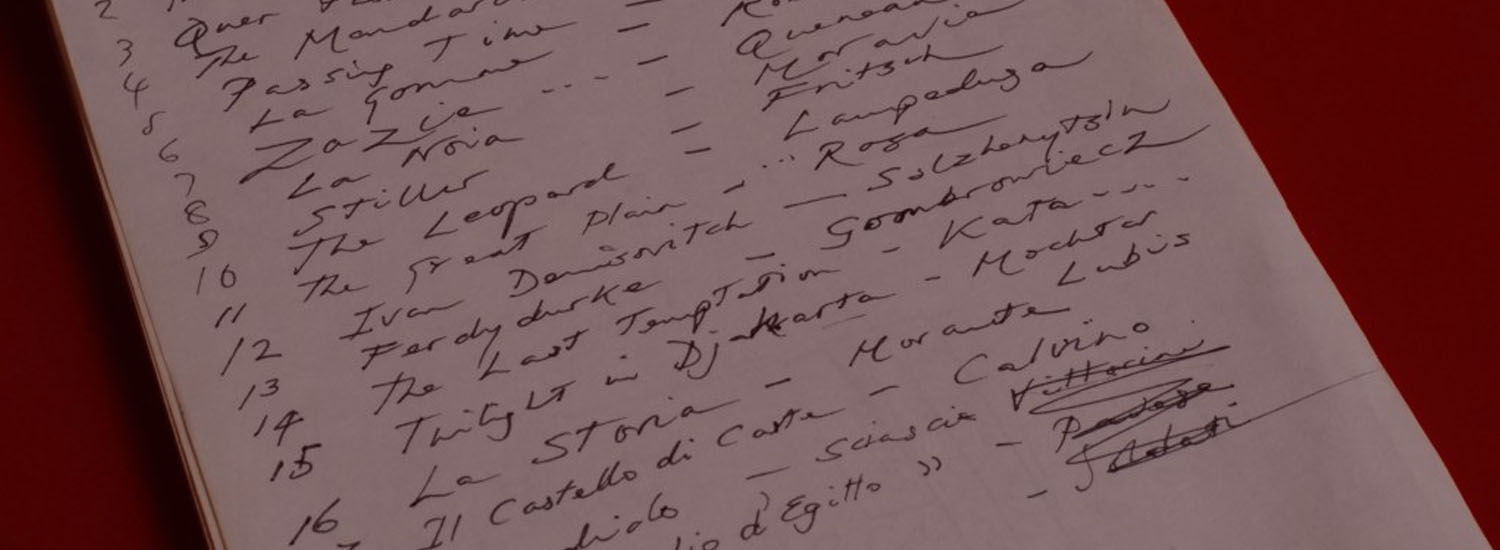 2
3 Quer
4 The Mandar
5 Passing Time —
6 La Gomme — Queneau
7 Zazie ... — Moravia
8 La Noia — Fritsch
9 Stiller — Lampedusa
10 The Leopard — ... Rosa
11 The Great Plain — Solzhenytsin
12 Ivan Denisovitch — Gombrowiecz
13 Ferdydurke — Kata ....
14 The Last Temptation - Mochtar
15 Twilight in Djakarta - Lubis
La Storia — Morante
16 Il Castello di Carte — Calvino
— Sciascia Vittorini
d'Egitto » —